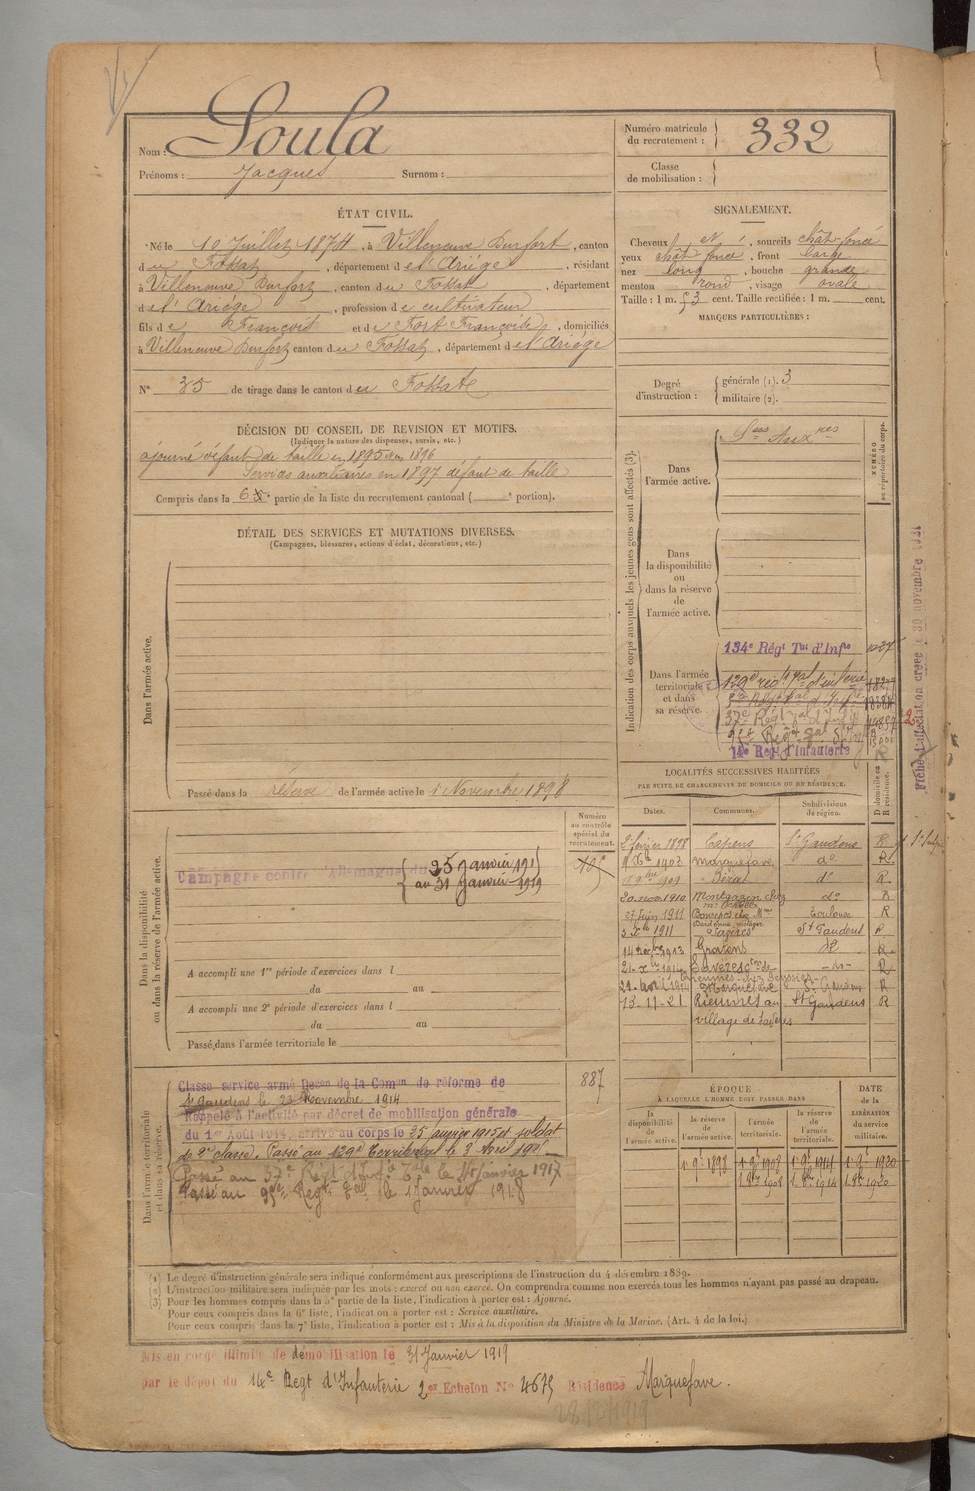 Nom : Soula
Prénoms : Jacques Surnom :
Numéro matricule du recrutement : 332
Classe de mobilisation :
ÉTAT CIVIL.
Né le 10 Juillet 1874, à Villeneuve Durfort, canton
du Fossat, département de l'Ariège, résidant
à Villeneuve Durfort, canton du Fossat, département
de l'Ariège, profession de cultivateur
fils de François et de Fort Françoise, domiciliés
à Villeneuve Durfort canton du Fossat, département de l'Ariège
N° 35 de tirage dans le canton du Fossat
SIGNALEMENT.
Cheveux N, sourcils chât-foncé
yeux chât foncé, front large
nez long, bouche grande
menton rond, visage ovale
Taille : 1 m. 53 cent. Taille rectifiée : 1 m. cent.
MARQUES PARTICULIÈRES :
Degré d'instruction : générale (1). 3
militaire (2).
DÉCISION DU CONSEIL DE REVISION ET MOTIFS.
(Indiquer la nature des dispenses, sursis, etc.)
ajourné défaut de taille en 1895 en 1896
Services auxiliaires en 1897 défaut de taille
Compris dans la 6e partie de la liste du recrutement cantonal ( e portion).
DÉTAIL DES SERVICES ET MUTATIONS DIVERSES.
(Campagnes, blessures, actions d'éclat, décorations, etc.)
Dans l'armée active.
Passé dans la réserve de l'armée active le 1 Novembre 1898
Indication des corps auxquels les jeunes gens sont affectés (3).
NUMÉRO au répertoire du corps.
Dans l'armée active.
Sces Auxres
Dans la disponibilité ou dans la réserve de l'armée active.
Dans l'armée territoriale et dans sa réserve.
134e Régt Tal d'Infie
129e rég t tal d'infanterie
37e Régt
14e Regt d'Infanterie
Fiche d'affectation créée le 30 novembre
Numéro au contrôle spécial du recrutement.
Dans la disponibilité ou dans la réserve de l'armée active.
Campagne contre l'Allemagne du
25 Janvier 1915
au 31 Janvier 1919
A accompli une 1re période d'exercices dans l
du au
A accompli une 2e période d'exercices dans l
du au
Passé dans l'armée territoriale le
LOCALITÉS SUCCESSIVES HABITÉES
PAR SUITE DE CHANGEMENTS DE DOMICILE OU DE RÉSIDENCE.
Dates. Communes. Subdivisions de région. D domicile ou R résidence.
2 février 1898 Capens St Gaudens R
1903 Marquefave do R
1909 do R
20 nov 1910 Montgazin do R
27 Juin 1911 Toulouse R
1911 St Gaudens R
1913 Gratens R
1914 R
21 avril Marquefave St Gaudens R
13-11-21 Rieumes au St Gaudens R
village de
Dans l'armée territoriale et dans sa réserve.
887
Classé service armé Decon de la Comon de réforme de
St Gaudens le 23 Novembre 1914
Rappelé à l'activité par décret de mobilisation générale
du 1er Août 1914, arrivé au corps le 25 janvier 1915 et soldat
de 2e classe. Passé au 129e Territorial le 3 Avril
Passé au 37e Régt d'Infie Tale le 1er janvier 1917
Passé au Regt Tal le 1 Janvier 1918
ÉPOQUE
À LAQUELLE L'HOMME DOIT PASSER DANS
la disponibilité de l'armée active. la réserve de l'armée active. l'armée territoriale. la réserve de l'armée territoriale. DATE de la LIBÉRATION du service militaire.
1 9e 1898 1 9e 1908 1 9e 1914 1 9e 1920
1 8bre 1908 1 8bre 1914 1 8bre 1920
(1) Le degré d'instruction générale sera indiqué conformément aux prescriptions de l'instruction du 4 décembre 1889.
(2) L'instruction militaire sera indiquée par les mots : exercé ou non exercé. On comprendra comme non exercés tous les hommes n'ayant pas passé au drapeau.
(3) Pour les hommes compris dans la 5e partie de la liste, l'indication à porter est : Ajourné.
Pour ceux compris dans la 6e liste, l'indication à porter est : Service auxiliaire.
Pour ceux compris dans la 7e liste, l'indication à porter est : Mis à la disposition du Ministre de la Marine. (Art. 4 de la loi.)
Mis en congé illimité de démobilisation le 31 Janvier 1919
par le dépôt du 14e Regt d'Infanterie 2e Echelon N° 4675 Résidence Marquefave.